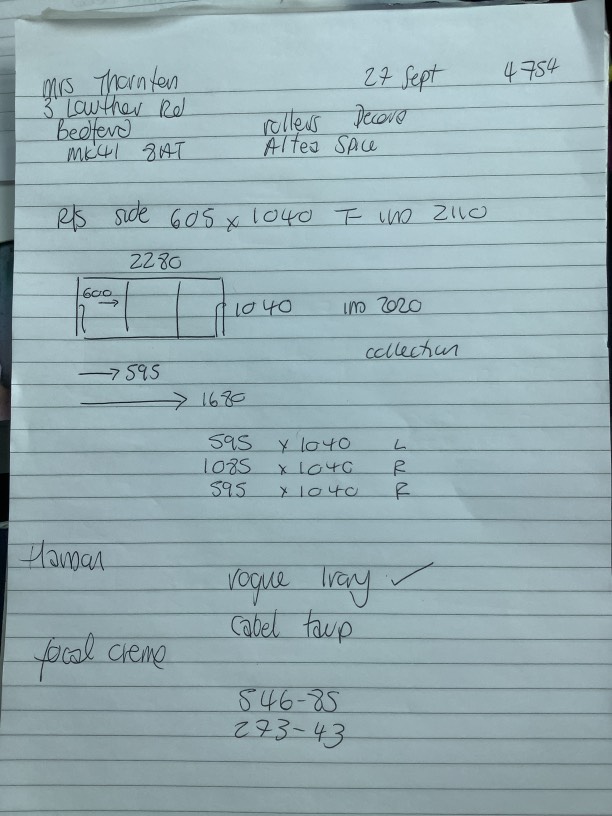 Mrs Thornton 27 Sept 4754
3 Lowther Rd
Bedford rollers Decora
MK41 8AT Altea Spice
R/S side 605 x 1040 F 2110
2280
600 → 1040 2020
collection
→ 595
→ 1680
595 x 1040 L
1085 x 1040 R
595 x 1040 R
vogue ✓
Cabel taup
focal creme
546-85
273-43